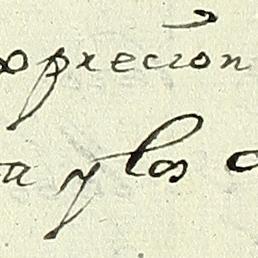 opreción
a y los